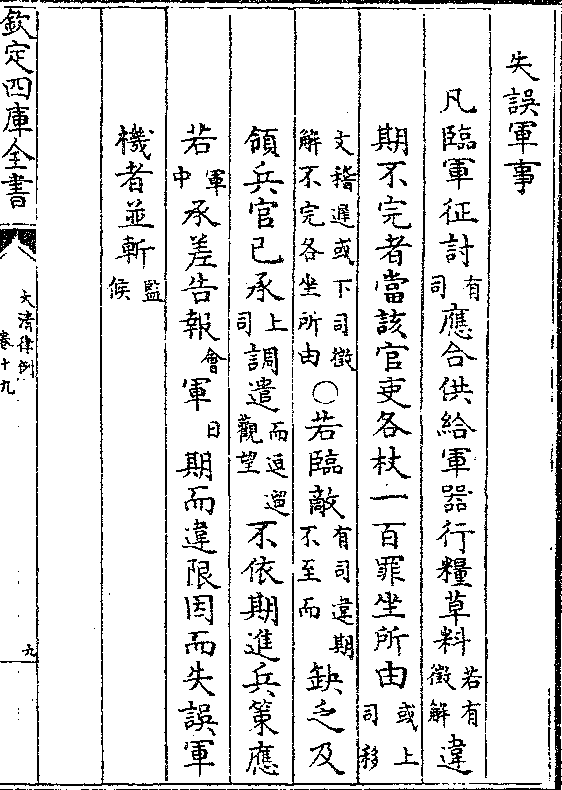 失誤軍事
凡臨軍征討有司應合供給軍器行糧草料若有徵解違
期不完者當該官吏各杖一百罪坐所由或上司移
文稽遲或下司徵解不完各坐所由○若臨敵有司違期不至而缺乏及
領兵官已承上司調遣而逗遛觀望不依期進兵策應
若軍中承差告報會軍日期而違限因而失誤軍
機者並斬監候
欽定四庫全書
大清律例
卷十九
九